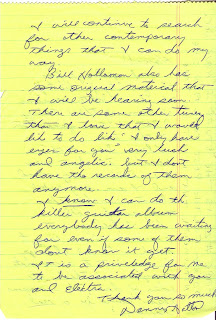 I will continue to search
for other contemporary
things that I can do my
way.
Bill Holloman also has
some original material that
I will be hearing soon.
There are some other tunes
that I love that I would
like to do like "I only have
eyes for you" very lush
and angelic. but I don't
have the records of them
anymore.
I know I can do the
killer guitar album
everybody has been waiting
for even if some of them
don't know it yet.
It is a priviledge for me
to be associated with you
and elektra.
Thank you so much
Danny Gatton